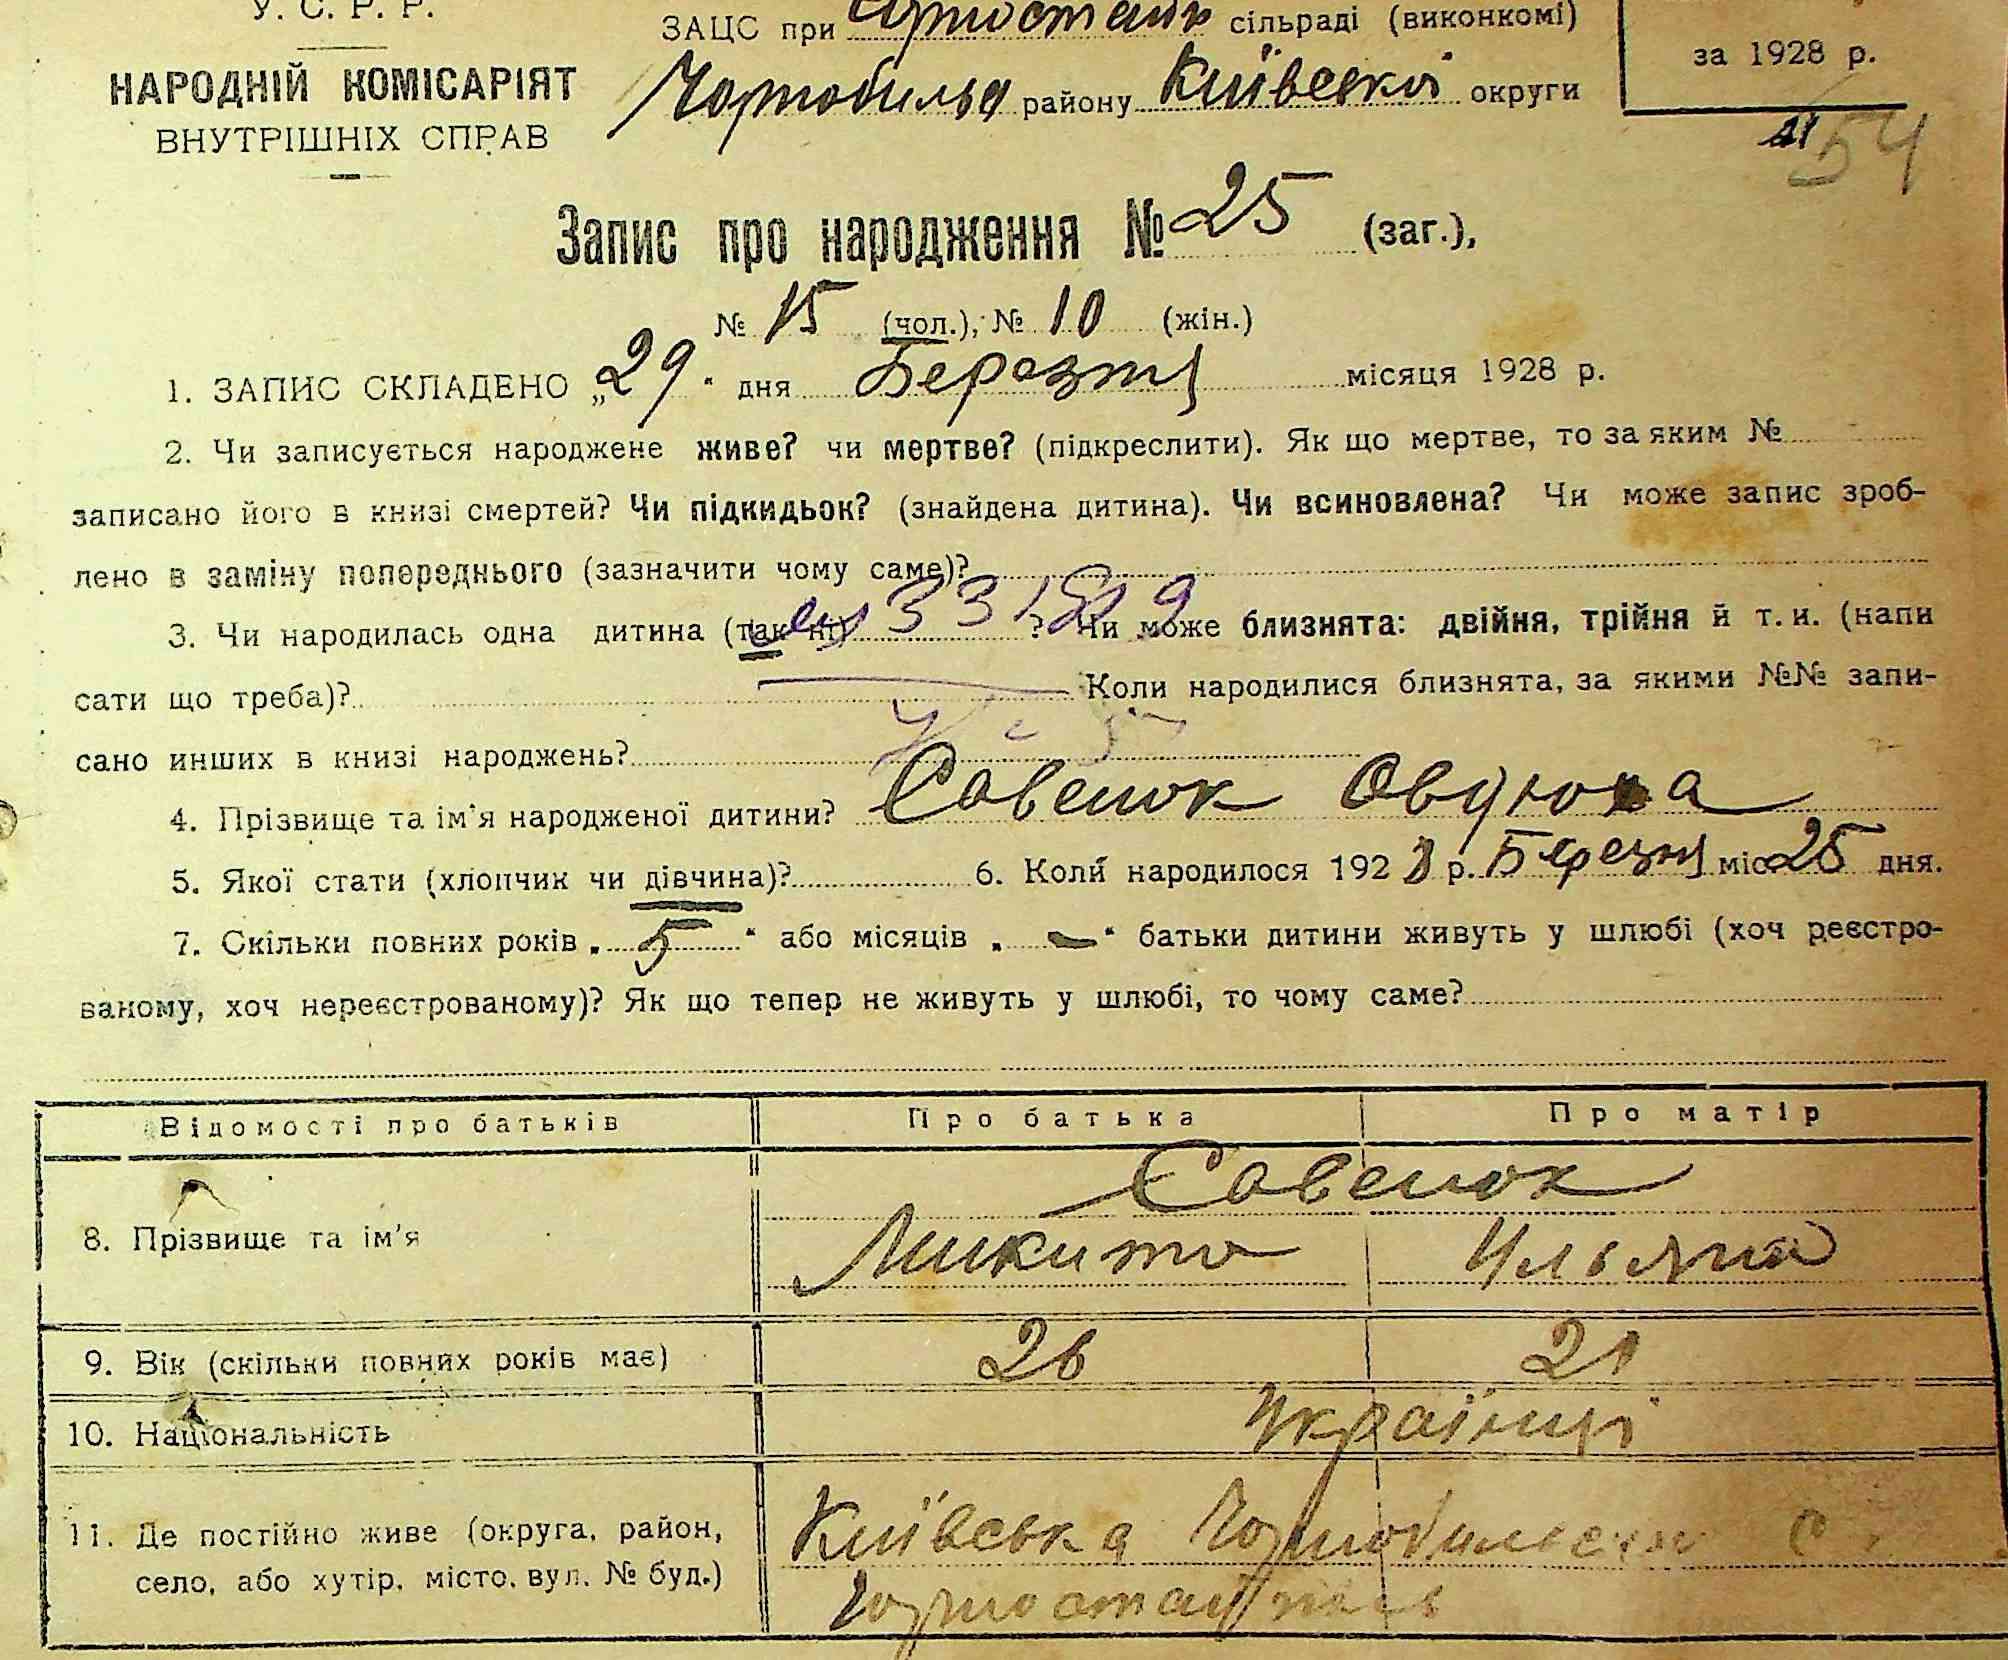 У. С. Р. Р.
ЗАЦС при сільраді (виконкомі)
НАРОДНІЙ КОМІСАРІЯТ
ВНУТРІШНІХ СПРАВ
району Київської округи
за 1928 р.
54
Запис про народження № 25 (заг.),
№ 15 (чол.), № 10 (жін.)
1. ЗАПИС СКЛАДЕНО „29“ дня Березня місяця 1928 р.
2. Чи записується народжене живе? чи мертве? (підкреслити). Як що мертве, то за яким №
записано його в книзі смертей? Чи підкидьок? (знайдена дитина). Чи всиновлена? Чи може запис зроб-
лено в заміну попереднього (зазначити чому саме)?
3. Чи народилась одна дитина (так ні) ? Чи може близнята: двійня, трійня й т. и. (напи
сати що треба)? Коли народилися близнята, за якими №№ запи-
сано инших в книзі народжень?
4. Прізвище та ім'я народженої дитини? Савенок
5. Якої стати (хлопчик чи дівчина)? 6. Коли народилося 1928 р. Березня міс 25 дня.
7. Скільки повних років „ 5 “ або місяців „ — “ батьки дитини живуть у шлюбі (хоч реєстро-
ваному, хоч нереєстрованому)? Як що тепер не живуть у шлюбі, то чому саме?
Відомості про батьків Про батька Про матір
Савенок
8. Прізвище та ім'я Микита Ульяна
9. Вік (скільки повних років має) 26 21
10. Національність Українці
11. Де постійно живе (округа, район,
село, або хутір, місто, вул. № буд.)
Київська с.